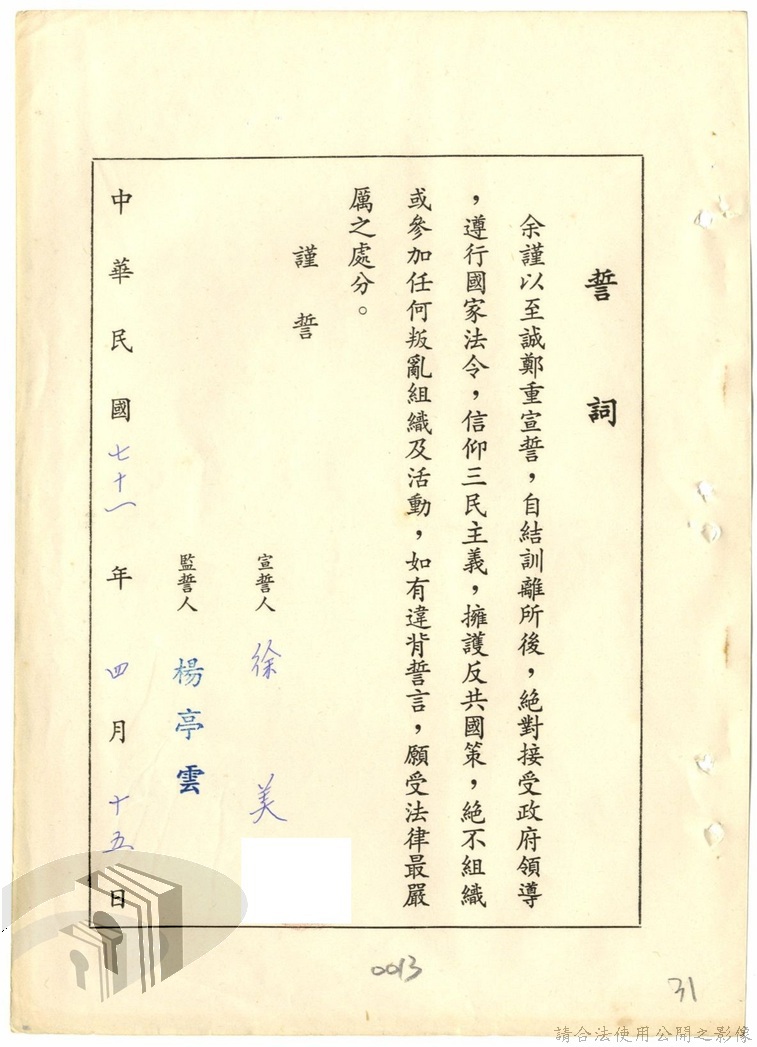 誓詞
余謹以至誠鄭重宣誓，自結訓離所後，絕對接受政府領導
，遵行國家法令，信仰三民主義，擁護反共國策，絕不組織
或參加任何叛亂組織及活動，如有違背誓言，願受法律最嚴
厲之處分。
謹誓
宣誓人 徐美
監誓人 楊亭雲
中華民國七十一年四月十五日
0013
31
請合法使用公開之影像